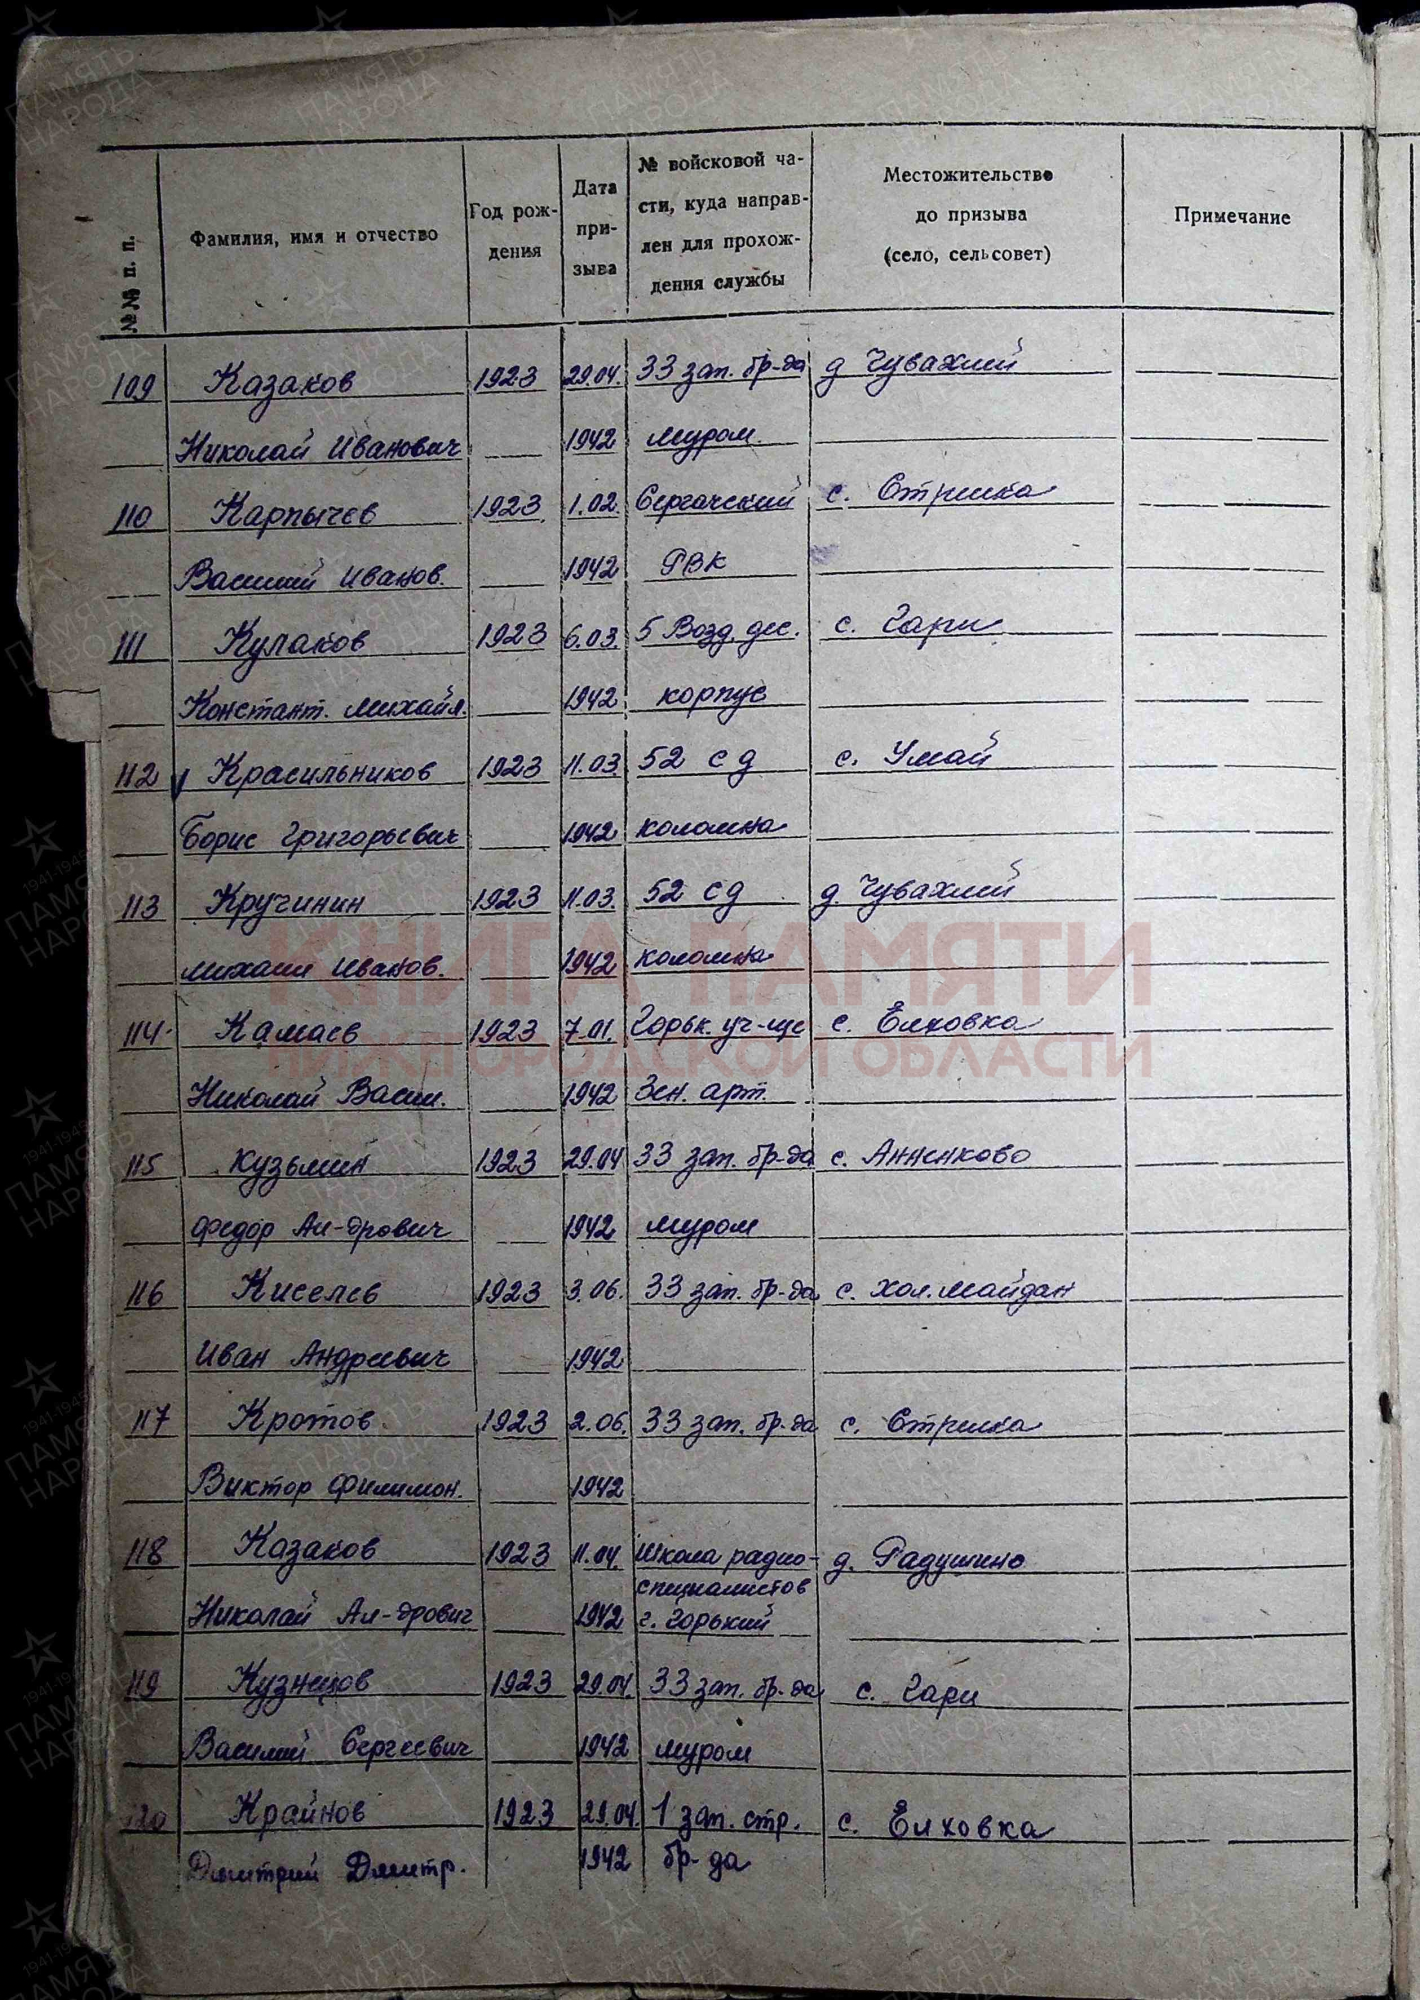 №№ п. п.
Фамилия, имя и отчество
Год рож-
дения
Дата
при-
зыва
№ войсковой ча-
сти, куда направ-
лен для прохож-
дения службы
Местожительство
до призыва
(село, сельсовет)
Примечание
109 Казаков 1923 29.04. 33 зап. бр-да д Чувахлей
Николай Иванович 1942 Муром.
110 Карпычев 1923 1.02. Сергачский с. Стрелка
Василий Иванов. 1942 РВК
111 Кулаков 1923 6.03. 5 Возд. дес. с. Гари
Констант. Михайл. 1942 корпус
112 Красильников 1923 11.03 52 с д с. Умай
Борис Григорьевич 1942 Коломна
113 Кручинин 1923 11.03. 52 сд д Чувахлей
Михаил Иванов. 1942 Коломна
114 Камаев 1923 7.01. Горьк. уч-ще с. Елховка
Николай Васил. 1942 Зен. арт.
115 Кузьмин 1923 29.04 33 зап. бр-да с. Анненково
Федор Ал-дрович 1942 Муром
116 Киселев 1923 3.06. 33 зап. бр-да с. Хол. Майдан
Иван Андреевич 1942
117 Кротов 1923 2.06. 33 зап. бр-да с. Стрелка
Виктор Филимон. 1942
118 Казаков 1923 11.04. Школа радио- д. Радушино
специалистов
Николай Ал-дрович 1942 г. Горький
119 Кузнецов 1923 29.04. 33 зап. бр-да с. Гари
Василий Сергеевич 1942 Муром
120 Крайнов 1923 29.04. 1 зап. стр. с. Елховка
Дмитрий Дмитр. 1942 бр-да
КНИГА ПАМЯТИ
НИЖЕГОРОДСКОЙ ОБЛАСТИ
ПАМЯТЬ
НАРОДА
1941-1945